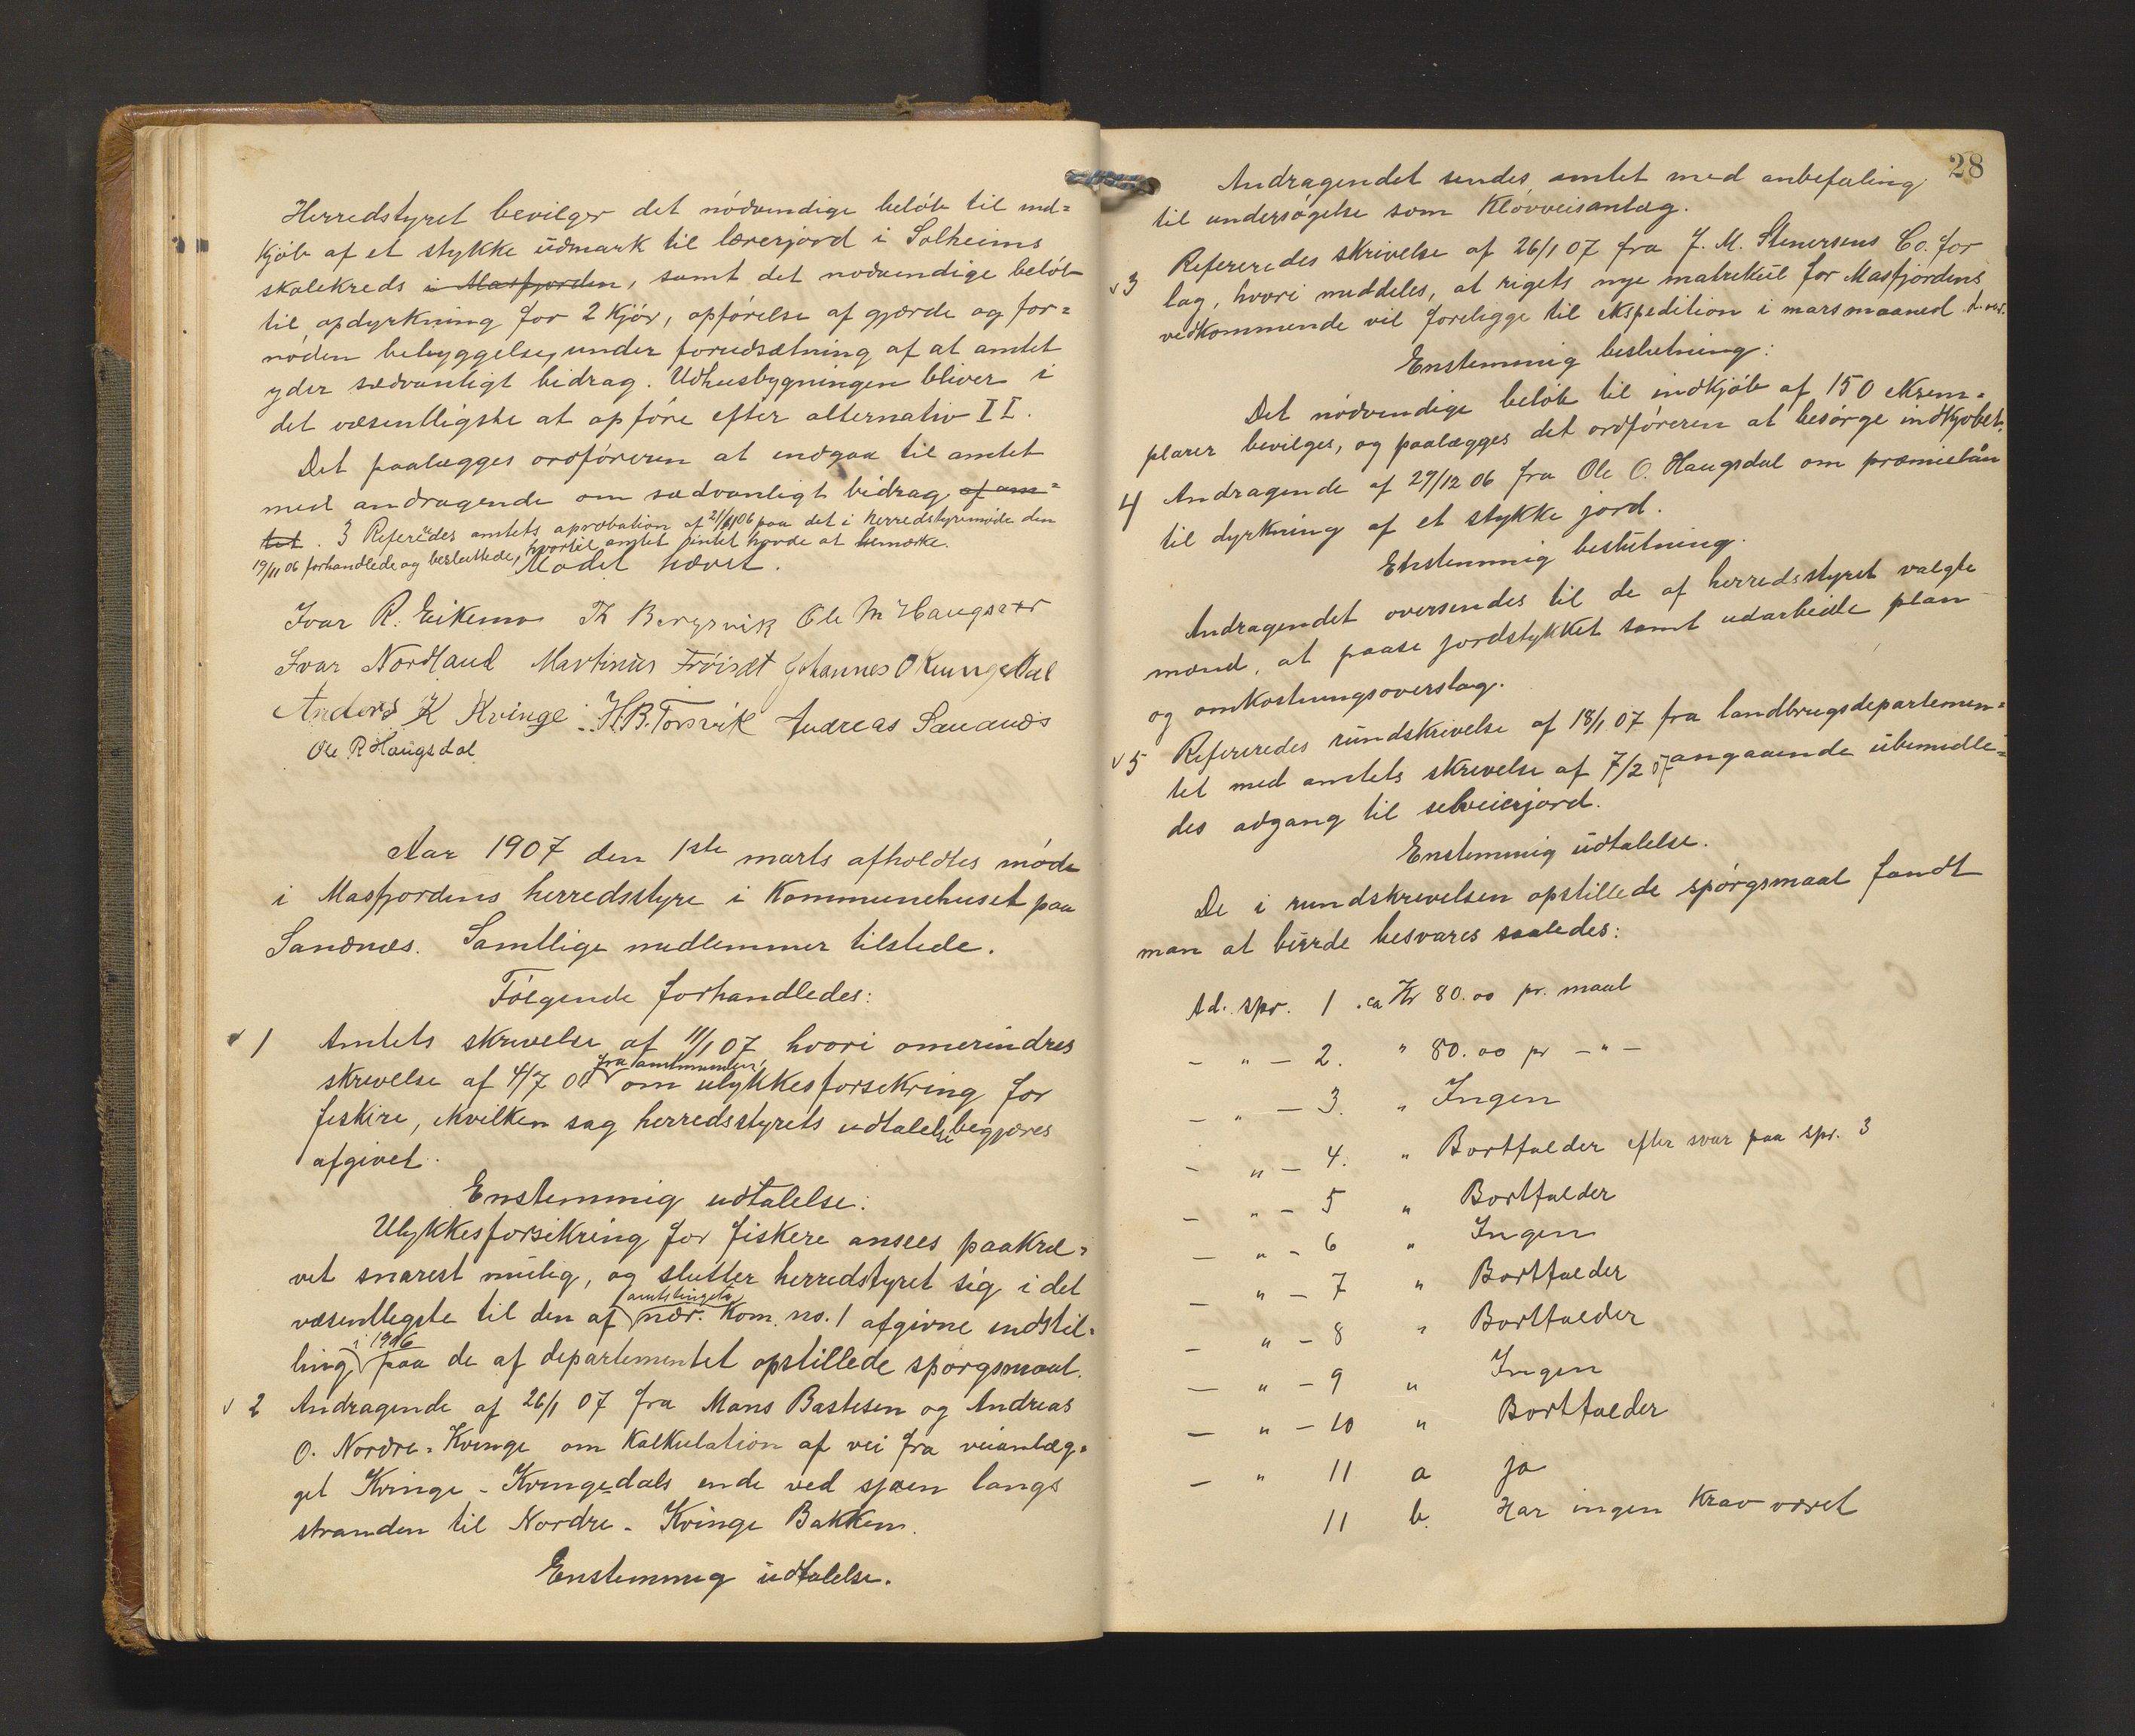 Herredstyret bevilger det nódvendige belób til ind=
kjób af et stykke údmark til lærerjord i Solheims
skolekreds i Masfjorden, samt det nodvendige belób
til opdyrkning for 2 kjór, opfórelse af gjærde og for=
nóden bebyggelse, under forudsætning af at amtet
yder sædvanligt bidrag. Udhusbygningen bliver i
det væsentligste at opfóre efter alternativ II.
Det paalægges ordfóreren at indgaa til amtet
med andragende om sædvanligt bidrag af am=
tet. 3 Referedes amtets aprobation af 21/11 06 paa det i herredstyremóde den
19/11 06 forhandlede og besluttede, hvortil amtet intet havde at bemærke.
Módet hævet.
Ivar R. Eikemo Th Bergsvik Ole M Haugsvær
Ivar Nordland Martinus Fröiset Johannes O Kvingedal
Anders K Kvinge H.B. Torsvik Andreas Sandnæs
Ole R Haugsdal
Aar 1907 den 1ste marts afholdtes móde
i Masfjordens herredsstyre i Kommunehuset paa
Sandnæs. Samtlige medlemmer tilstede.
Fólgende forhandledes:
v 1 Amtets skrivelse af 11/1 07 hvori omerindres
fra amtmanden
skrivelse af 4/7 06 om ulykkesforsekring for
feskire, i hvilken sag herredsstyrets udtalelse begjæres
afgivet.
Enstemmig udtalelse:
Ulykkesforsikring for fiskere ansees paakræ=
vet snarest mulig, og slutter herredstyret sig i det
amtstingets
væsentlegste til den af nær. Kom. no. 1 afgivne indstil=
i 1906
ling paa de af departementet opstillede spórgsmaal.
v 2 Andragende af 26/1 07 fra Mons Bastesen og Andreas
O. Nordre-Kvinge om kalkulation af vei fra veianlæg=
get Kvinge-Kvingedals ende ved sjóen langs
stranden til Nordre-Kvinge Bakken.
Enstemmig údtalelse.
28
Andragendet sendes amtet med anbefaling
til undersógelse som Klóvveisanlæg.
v 3 Refereredes skrivelse af 26/1 07 fra J. M. Stenersens Co. for
lag, hvori meddeles, at rigets nye matrikúl for Masfjordens
vedkommende vil foreligge til ekspedition i marsmaaned
Enstemmig beslutning:
Det nódvendige belób til indkjób af 150 eksem=
plarer bevilges, og paalægges det ordfóreren at besórge indkjóbet.
4 Andragende af 27/12 06 fra Ole O. Haugsdal om præmielån
til dyrkning af et stykke jord.
Enstemmig beslutning.
Andragendet oversendes til de af herredsstyret valgte
mænd, at paase jordstykket samt udarbeide plan
og omkostningsoverslag.
v 5 Refereredes rúndskrivelse af 18/1 07 fra landbrugsdepartemen=
tet med amtets skrivelse af 7/2 07 angaaende úbemidle=
des adgang til selveierjord.
Enstemmig údtalelse.
De i rundskrivelsen opstillede spórgsmaal fandt
man at búrde besvares saaledes:
Ad. spr. 1 . ca Kr 80.00 pr. maal
- " - 2. " 80.00 pr - " -
- " - 3. " Ingen
- " - 4. " Bortfalder efter svar paa spr. 3
- " - 5 " Bortfalder
- " - 6 " Ingen
- " - 7 " Bortfalder
- " - 8 " Bortfalder
- " - 9 " Ingen
- " - 10 " Bortfalder
- " 11 a ja
11 b. Har ingen krav været